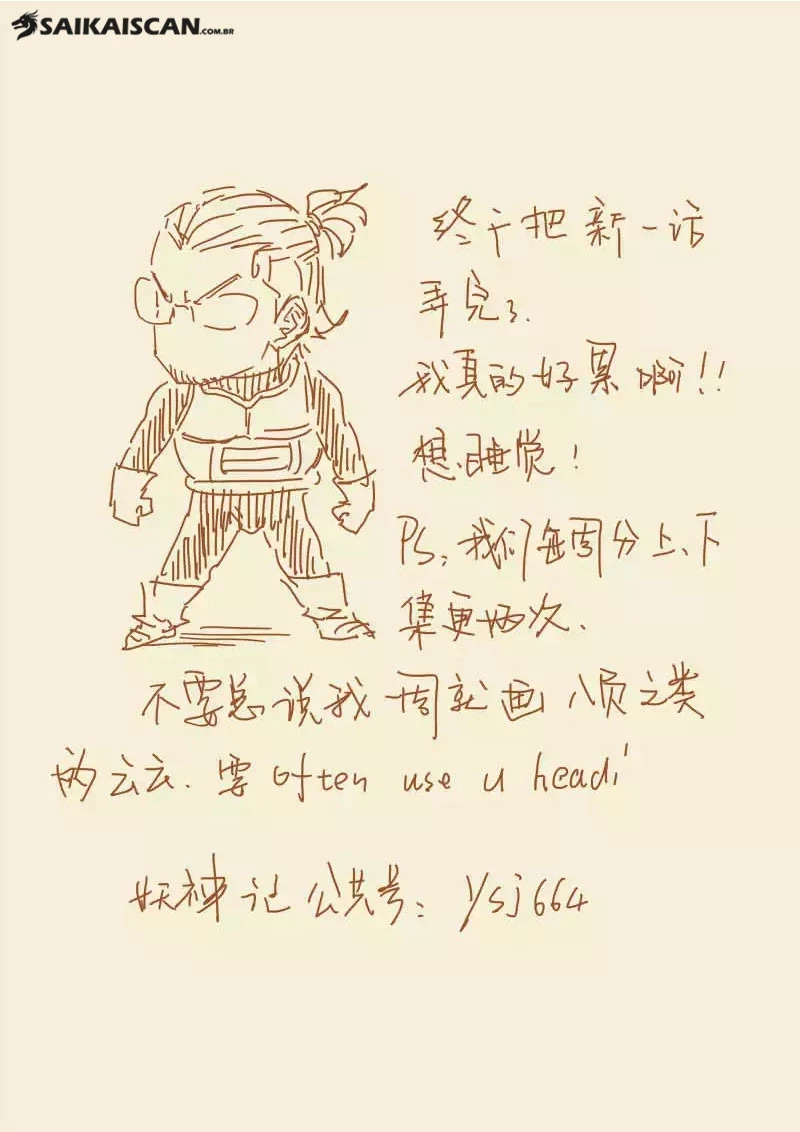 SAIKAISCAN.COM.BR
终于把新一话
弄完了.
我真的好累啊!!
想睡觉!
PS,我们每周分上、下
集更两次.
不要总说我一周就画八页之类
的云云.要often use u head!
妖神记公共号:ysj664